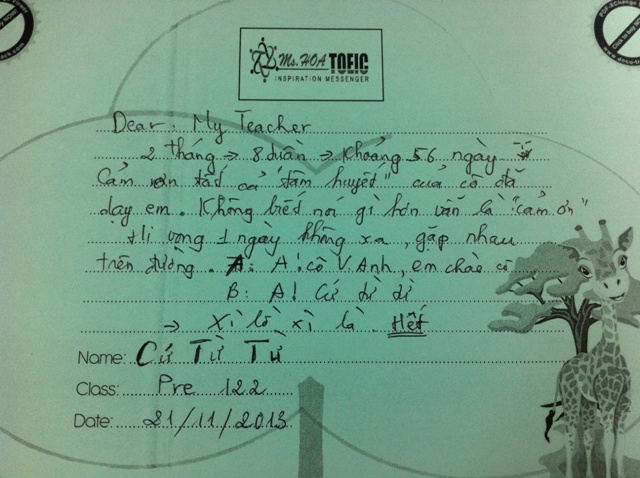 Ms. HOA TOEIC
INSPIRATION MESSENGER
Dear: My Teacher
2 tháng → 8 tuần → Khoảng 56 ngày
Cảm ơn tất cả "tâm huyết" của cô đã
dạy em. Không biết nói gì hơn vẫn là "cảm ơn"
Hi vọng 1 ngày không xa, gặp nhau
trên đường. A: A! cô V.Anh, em chào cô
B: A! Cứ từ từ
→ Xì lố xì là. Hết
Name: Cứ Từ Từ
Class: Pre 122
Date: 21/11/2013